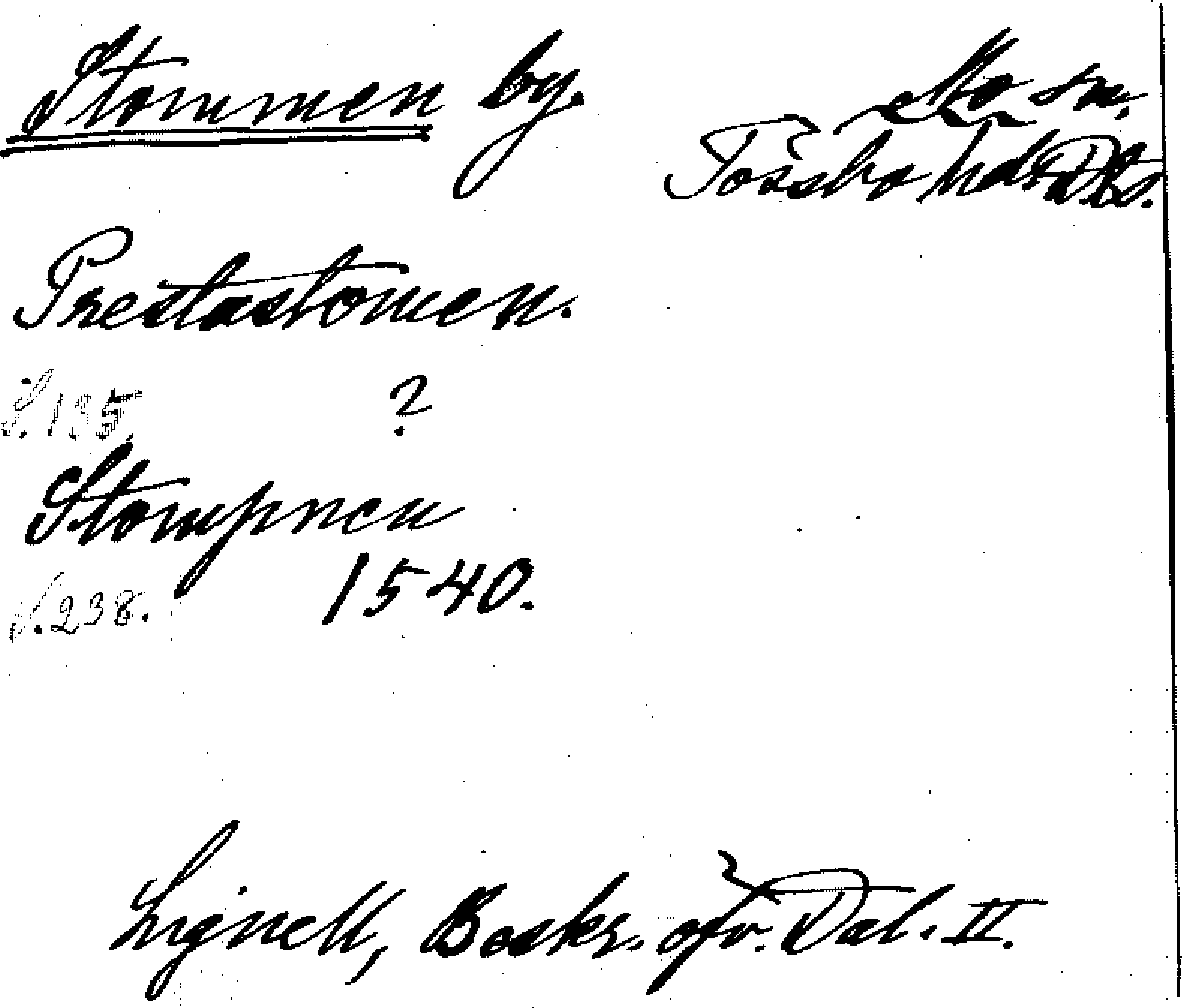 Stommen by.
Mo sn.
Tössbo hd Dls.
Prestastomen.
S. 195. ?
Stompnen
S. 238. 1540.
Lignell, Beskr. öfv. Dal. II.